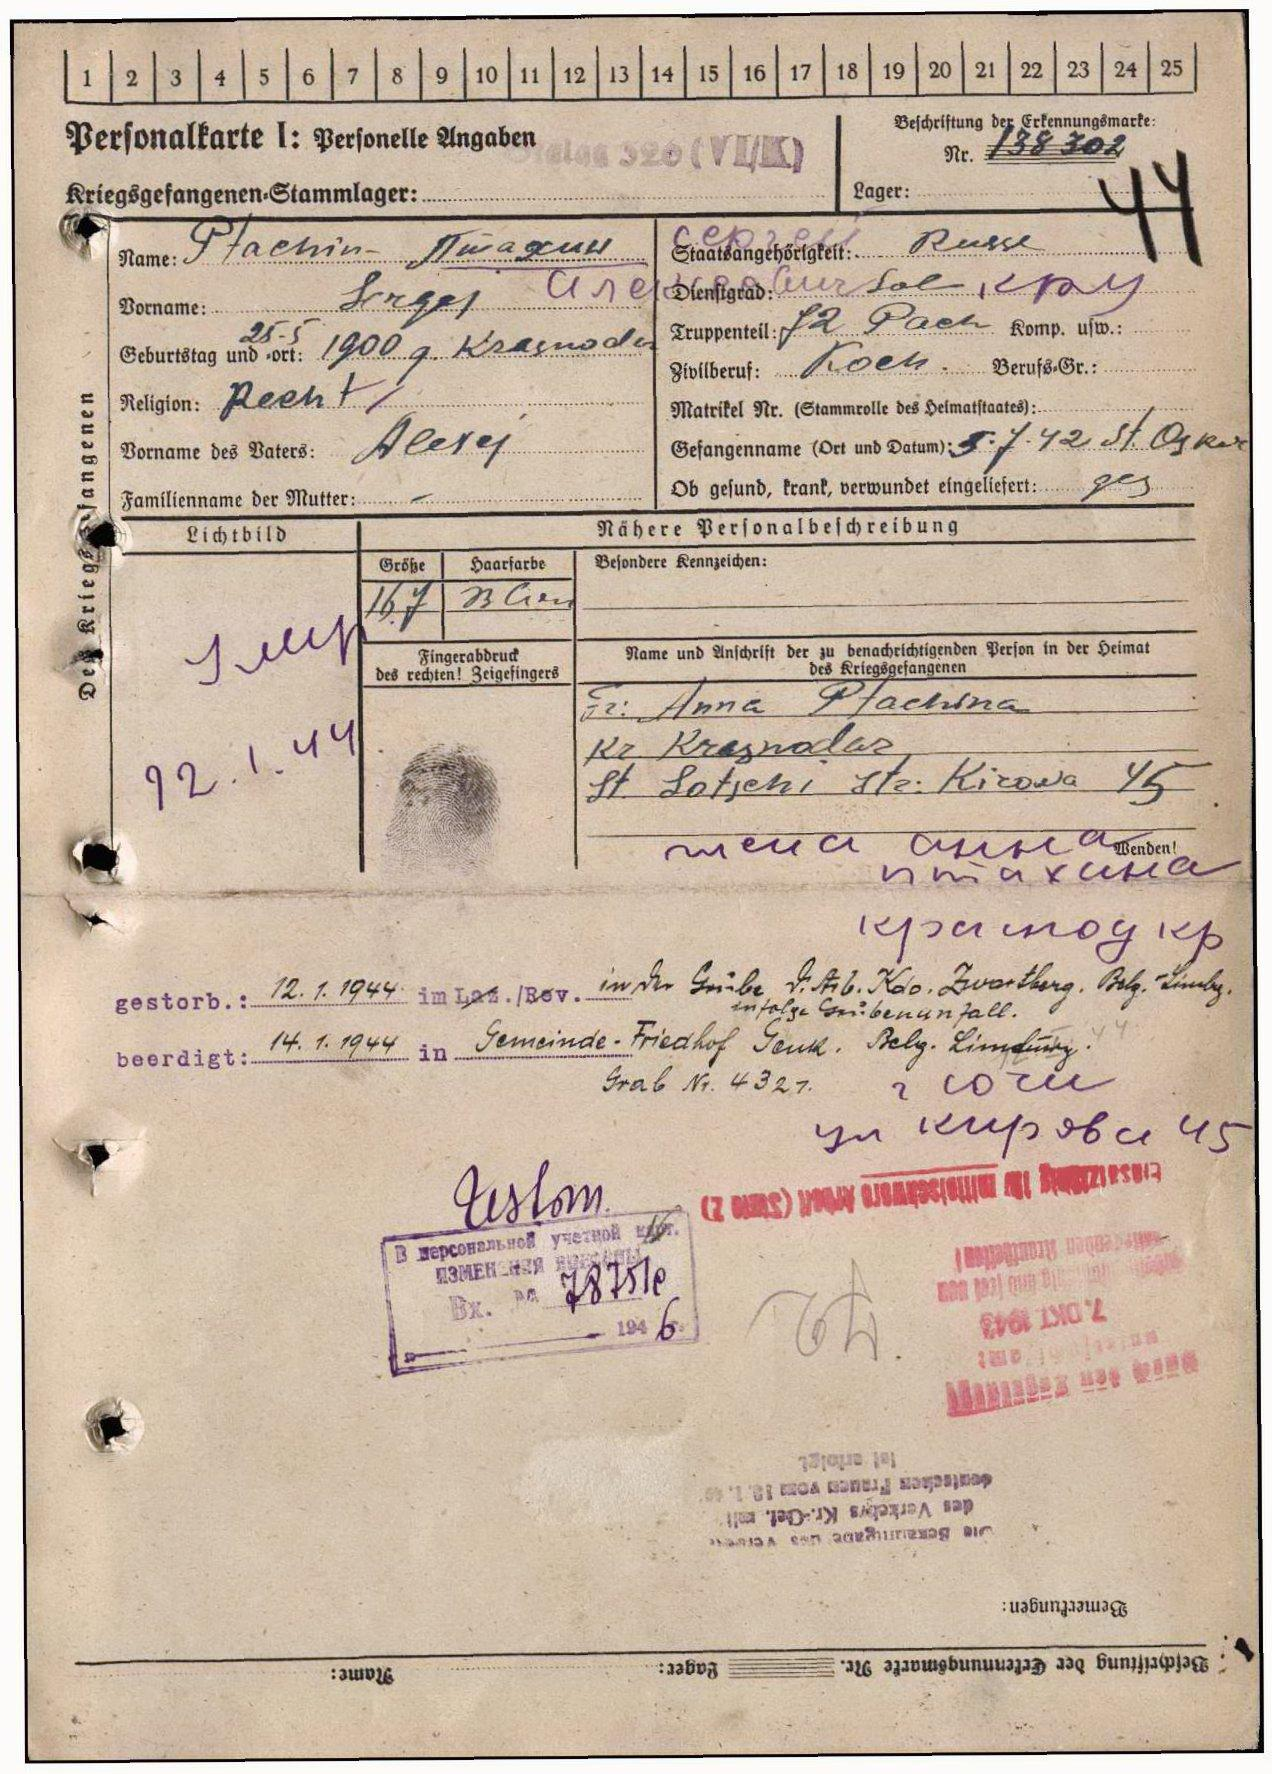 1 2 3 4 5 6 7 8 9 10 11 12 13 14 15 16 17 18 19 20 21 22 23 24 25
Personalkarte I: Personelle Angaben
Stalag 326 (VI/K)
Kriegsgefangenen-Stammlager:
Beschriftung der Erkennungsmarke:
Nr. 138 302
Lager:
44
Des Kriegsgefangenen
Name: Ptachin Птахин
Vorname: Sergej
25-5
Geburtstag und -ort: 1900 g. Krasnodar
Religion:
Vorname des Vaters: Alexej
Familienname der Mutter: -
Сергей
Staatsangehörigkeit: Russe
Dienstgrad: Sol
Truppenteil: 72 Komp. usw.:
Zivilberuf: Koch. Berufs-Gr.:
Matrikel Nr. (Stammrolle des Heimatstaates):
Gefangenname (Ort und Datum): 5.7.42 St. Oskol
Ob gesund, krank, verwundet eingeliefert: ges
Lichtbild
Умер
12.1.44
Nähere Personalbeschreibung
Größe Haarfarbe
167
Besondere Kennzeichen:
Fingerabdruck
des rechten! Zeigefingers
Name und Anschrift der zu benachrichtigenden Person in der Heimat
des Kriegsgefangenen
Fr: Anna Ptachina
Kr Krasnodar
St. Sotschi Str: Kirowa 45
Wenden!
жена анна
птахина
краснод кр
gestorb.: 12.1.1944 im Laz./Rev. in der Grube d. Arb. Kdo. Zwartberg. Belg.-Limbg.
infolge Grubenunfall.
beerdigt: 14.1.1944 in Gemeinde-Friedhof Genk. Belg. Limburg.
Grab Nr. 432
г сочи
ул кирова 45
Einsatzfähig für mittelschwere Arbeit (Stufe 2)
В персональной учетной карт.
ИЗМЕНЕНИЯ ВНЕСЕНЫ
Вх. № 7875
1946 г.
7. OKT 1943
42
Die Bekanntgabe des Verbots
des Verkehrs Kr.-Gef. mit
deutschen Frauen vom
ist erfolgt
Bemerkungen:
Beschriftung der Erkennungsmarke Nr. Lager: Name: